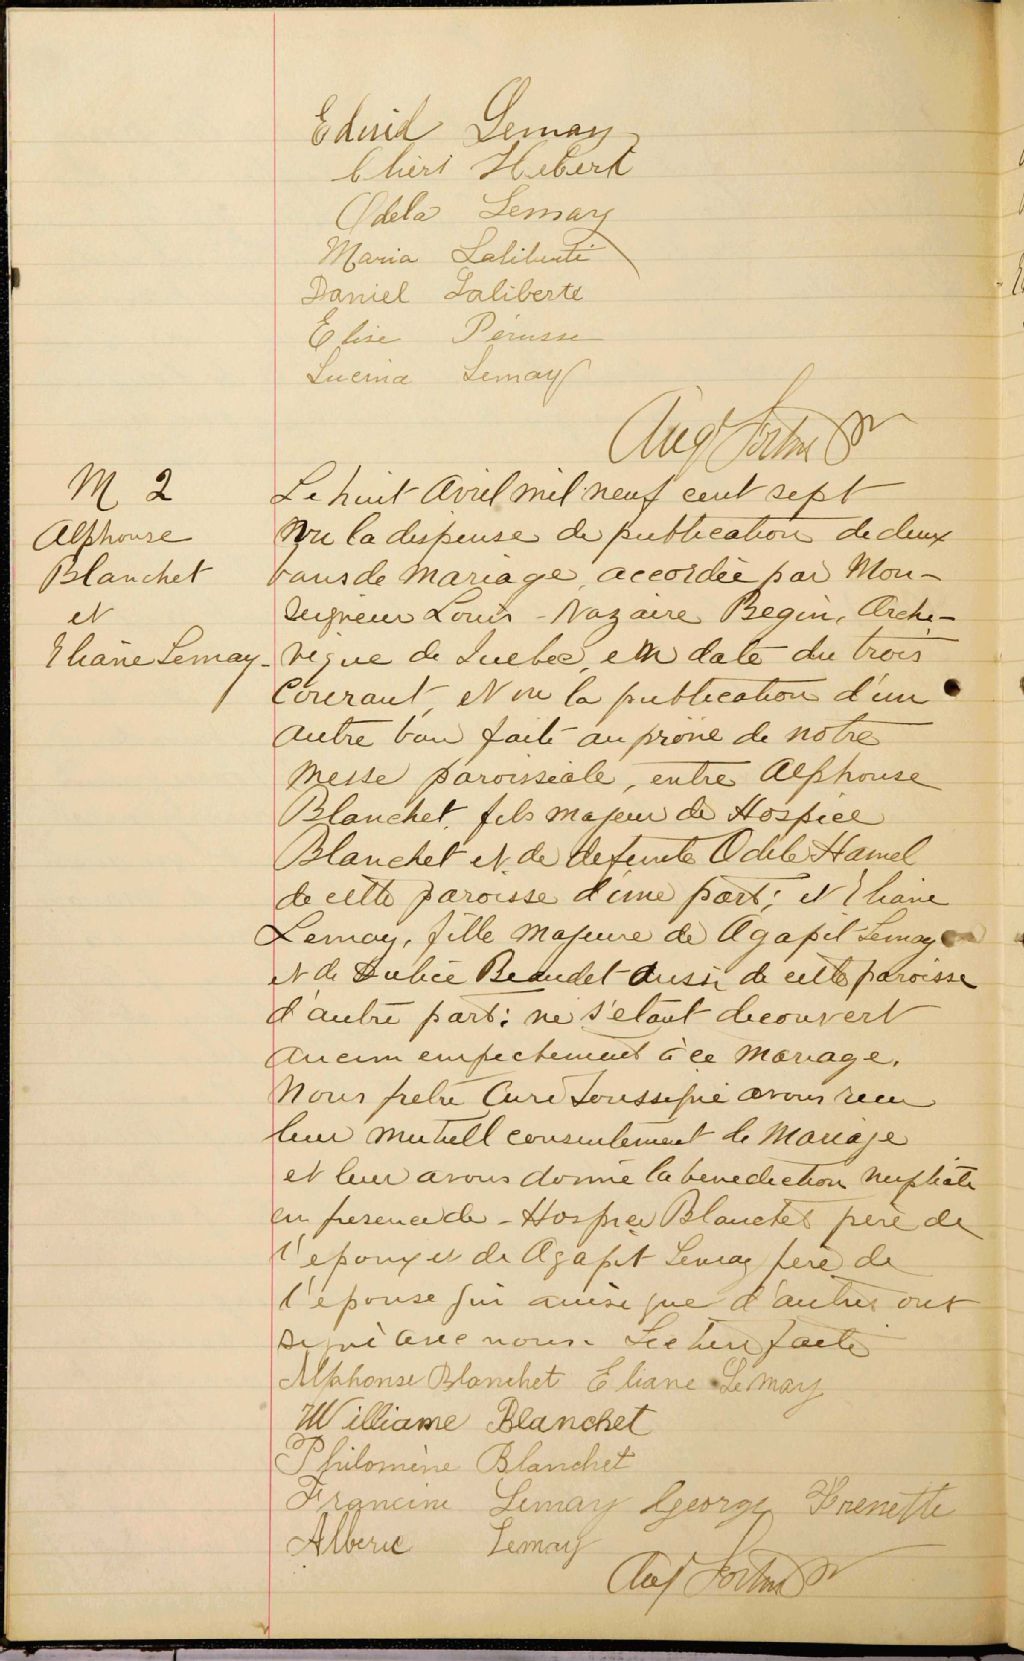 Edwid Lemay
Chéri Hébert
Odela Lemay
Maria Laliberté
Daniel Laliberté
Elise Pérusse
Lucina Lemay
Aug Fortier Ptr
M 2
Alphonse
Blanchet
et
Eliane Lemay
Le huit Avril mil neuf cent sept
Vu la dispense de publication de deux
bans de mariage, accordée par Mon-
seigneur Louis-Nazaire Begin, Arche-
vêque de Quebec, en date du trois
Courant, et vu la publication d'un
autre ban faite au prône de notre
messe paroissiale, entre Alphonse
Blanchet, fils majeur de Hospice
Blanchet et de defunte Odile Hamel
de cette paroisse d'une part; et Eliane
Lemay, fille majeure de Agapit Lemay
et de Beaudet aussi de cette paroisse
d'autre part; ne s'étant decouvert
aucun empechement à ce mariage.
Nous prêtre Curé Soussigné avons recu
leur mutuell consentement de Mariage
et leur avons donné la benediction nuptiale
en presence de Hospice Blanchet père de
l'epoux et de Agapit Lemay père de
l'epouse qui ainsi que d'autres ont
signé avec nous. Lecture faite
Alphonse Blanchet Eliane Lemay
Williame Blanchet
Philomène Blanchet
Francine Lemay George Frenette
Alberic Lemay
Aug Fortier Ptr